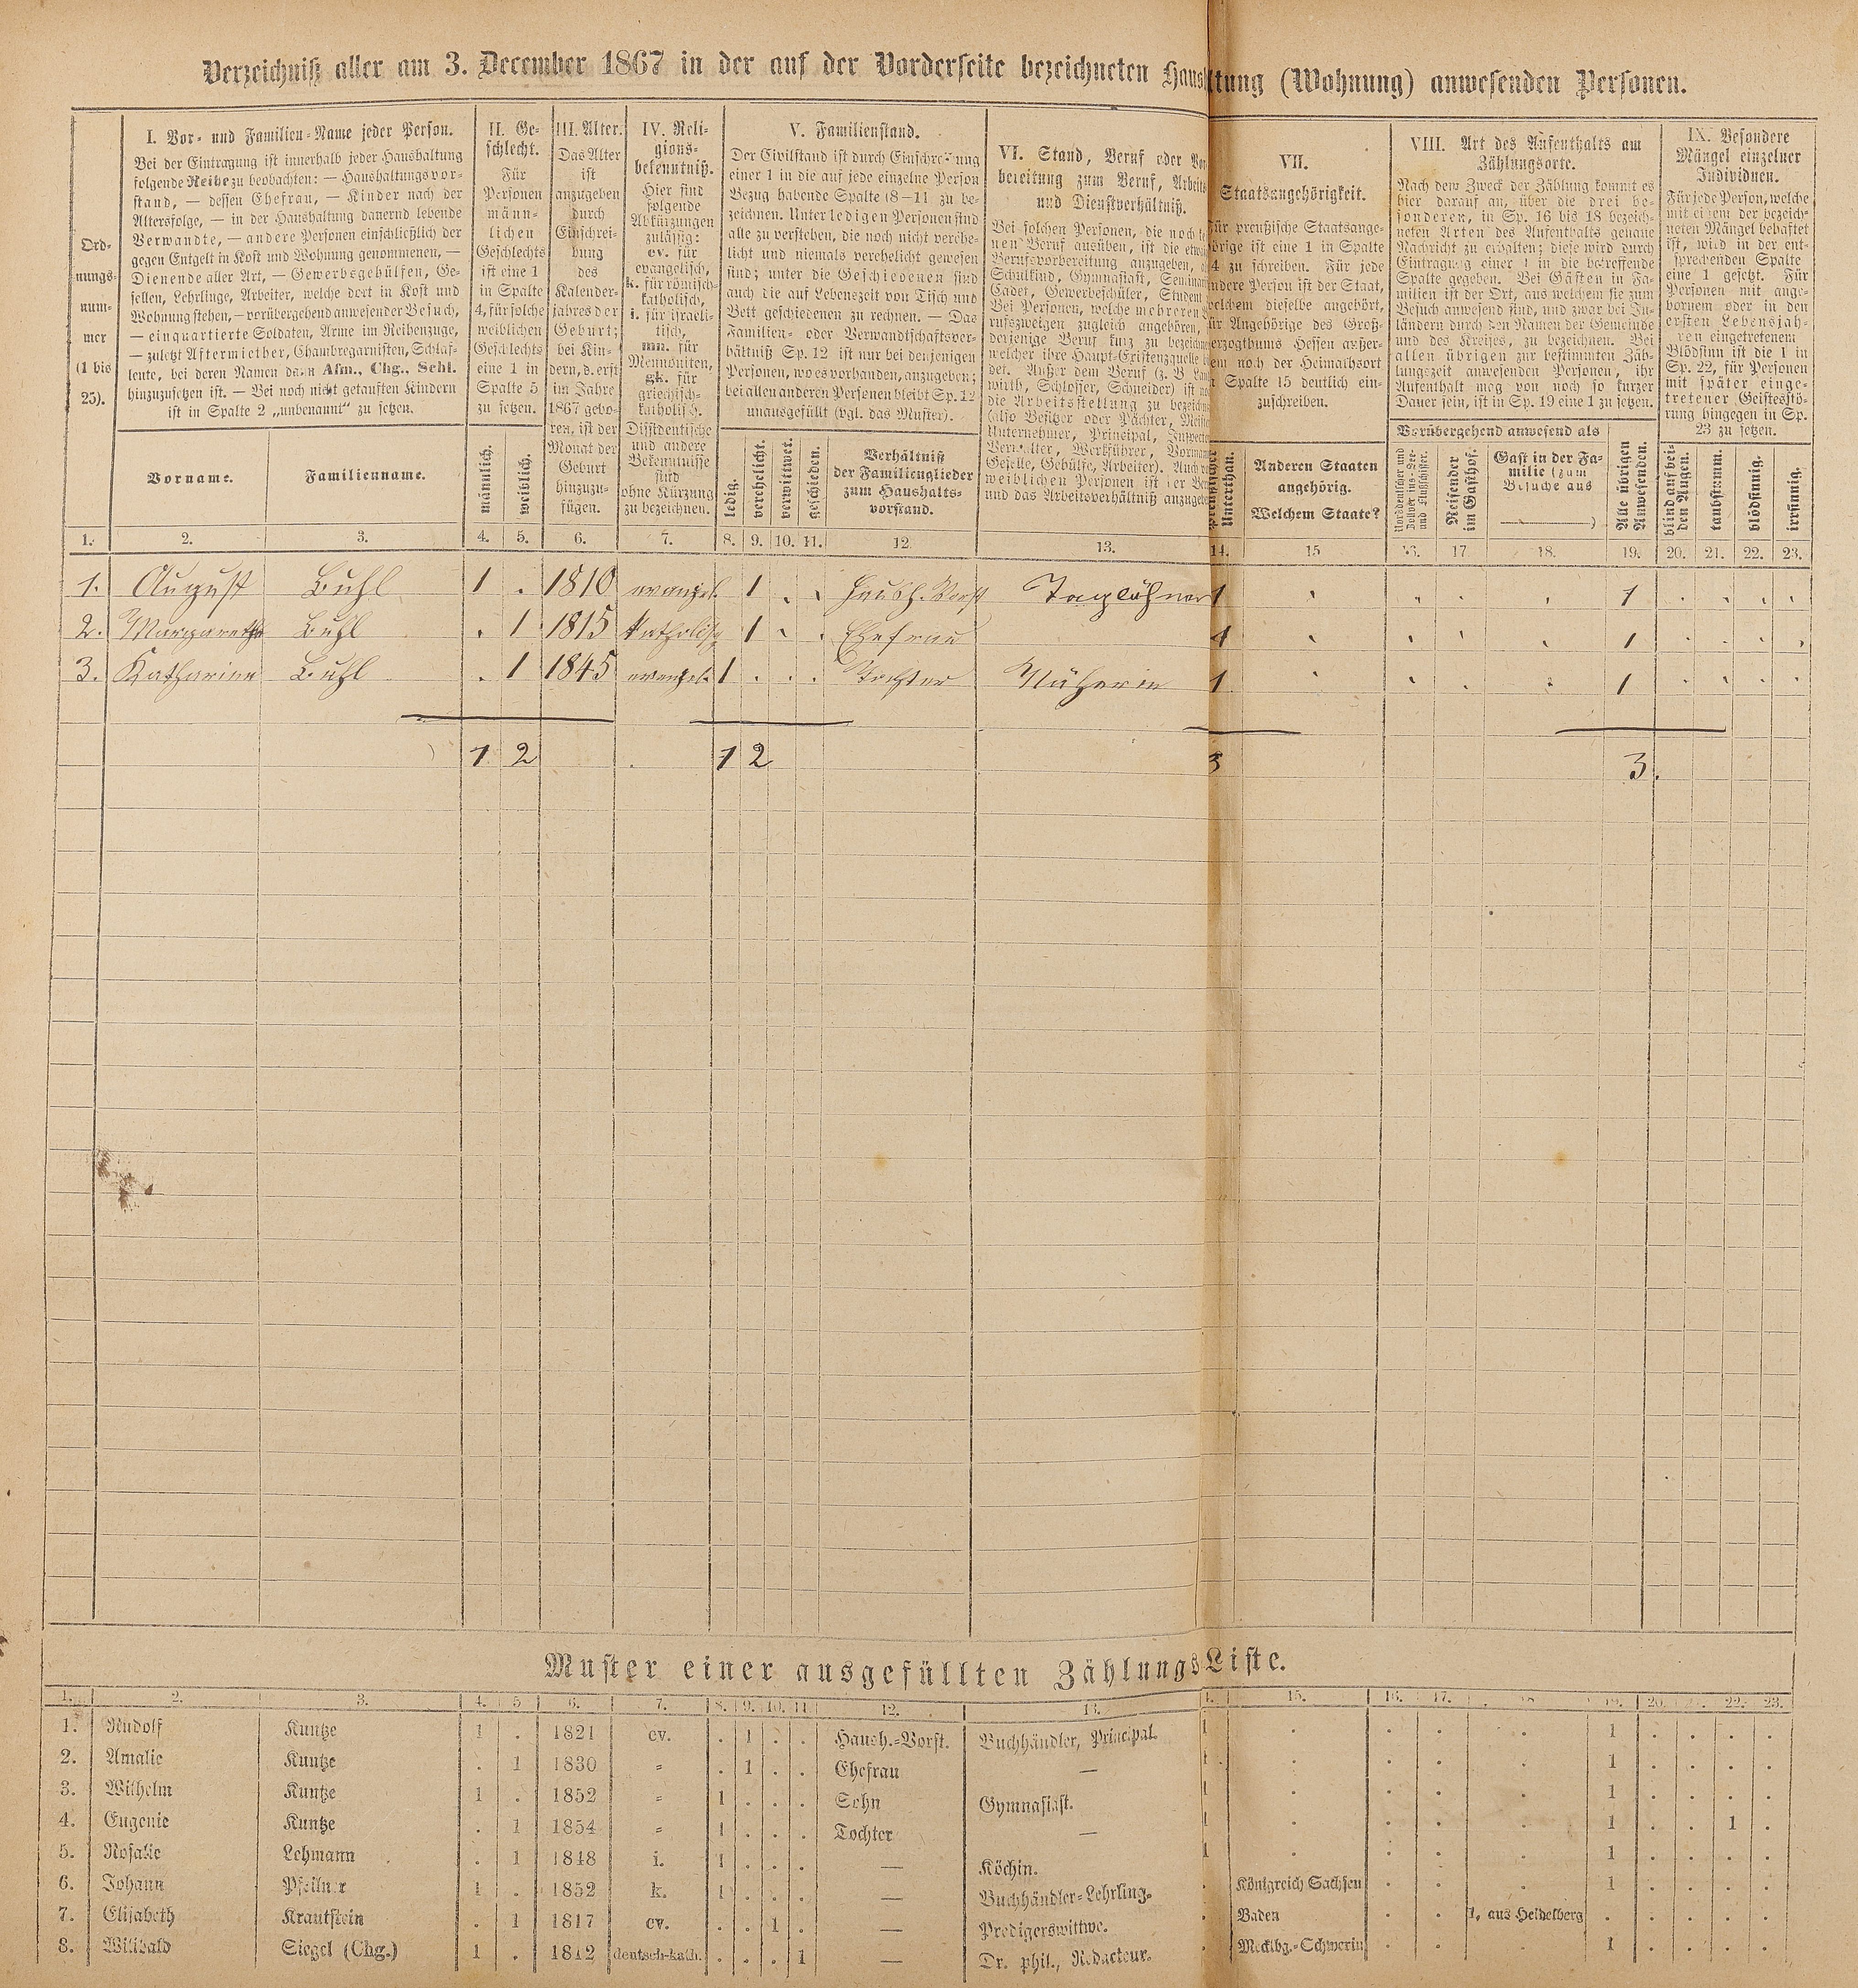 Verzeichniß aller am 3. December 1867 in der auf der Vorderseite bezeichneten Haushaltung (Wohnung) anwesenden Personen.
Ord-
nungs-
num-
mer
(1 bis
25).
I. Vor- und Familien-Name jeder Person.
Bei der Eintragung ist innerhalb jeder Haushaltung
folgende Reihe zu beobachten: — Haushaltungsvor-
stand, — dessen Ehefrau, — Kinder nach der
Altersfolge, — in der Haushaltung dauernd lebende
Verwandte, — andere Personen einschließlich der
gegen Entgelt in Kost und Wohnung genommenen, —
Dienende aller Art, — Gewerbsgehülfen, Ge-
sellen, Lehrlinge, Arbeiter, welche dort in Kost und
Wohnung stehen, — vorübergehend anwesender Besuch,
— einquartierte Soldaten, Arme im Reihenzuge,
— zuletzt Aftermiether, Chambregarnisten, Schlaf-
leute, bei deren Namen dann Afm., Chg. Schl.
hinzuzusetzen ist. — Bei noch nicht getauften Kindern
ist in Spalte 2 „unbenannt“ zu setzen.
Vorname.
Familienname.
II. Ge-
schlecht.
Für
Personen
männ-
lichen
Geschlechts
ist eine 1
in Spalte
4, für solche
weiblichen
Geschlechts
eine 1 in
Spalte 5
zu setzen.
männlich.
weiblich.
III. Alter.
Das Alter
ist
anzugeben
durch
Einschrei-
bung
des
Kalender-
jahres der
Geburt;
bei Kin-
dern, d. erst
im Jahre
1867 gebo-
ren, ist der
Monat der
Geburt
hinzuzu-
fügen.
IV. Reli-
gions-
bekenntniß.
Hier sind
folgende
Abkürzungen
zulässig:
ev. für
evangelisch,
k. für römisch-
katholisch,
i. für israeli-
tisch,
mn. für
Mennoniten,
gk. für
griechisch-
katholisch.
Dissidentische
und andere
Bekenntnisse
sind
ohne Kürzung
zu bezeichnen.
V. Familienstand.
Der Civilstand ist durch Einschreibung
einer 1 in die auf jede einzelne Person
Bezug habende Spalte (8—11) zu be-
zeichnen. Unter ledigen Personen sind
alle zu verstehen, die noch nicht verehe-
licht und niemals verehelicht gewesen
sind; unter die Geschiedenen sind
auch die auf Lebenszeit von Tisch und
Bett geschiedenen zu rechnen. — Das
Familien- oder Verwandtschaftsver-
hältniß Sp. 12 ist nur bei denjenigen
Personen, wo es vorhanden, anzugeben;
bei allen anderen Personen bleibt Sp. 12
unausgefüllt (vgl. das Muster).
ledig.
verehelicht.
verwittwet.
geschieden.
Verhältniß
der Familienglieder
zum Haushalts-
vorstand.
VI. Stand, Beruf oder Vor-
bereitung zum Beruf, Arbeits-
und Dienstverhältniß.
Bei solchen Personen, die noch
nen Beruf ausüben, ist die
Berufsvorbereitung anzugeben,
Schulkind, Gymnasiast,
Cadet, Gewerbeschüler, Student
Bei Personen, welche mehreren
rufszweigen zugleich angehören,
derjenige Beruf kurz zu bezeichnen
welcher ihre Haupt-Existenzquelle
det. Außer dem Beruf (z. B.
wirth, Schlosser, Schneider) ist
die Arbeitsstellung zu
(also Besitzer oder Pächter,
Unternehmer, Principal,
Verwalter, Werkführer,
Geselle, Gehülfe, Arbeiter). Auch
weiblichen Personen ist der
und das Arbeitsverhältniß
VII.
Staatsangehörigkeit.
Für preußische Staatsange-
hörige ist eine 1 in Spalte
14 zu schreiben. Für jede
andere Person ist der Staat,
welchem dieselbe angehört,
für Angehörige des Groß-
herzogthums Hessen außer-
dem noch der Heimathsort
in Spalte 15 deutlich ein-
zuschreiben.
Preußischer
Unterthan.
Anderen Staaten
angehörig.
Welchem Staate?
VIII. Art des Aufenthalts am
Zählungsorte.
Nach dem Zweck der Zählung kommt es
hier darauf an, über die drei be-
sonderen, in Sp. 16 bis 18 bezeich-
neten Arten des Aufenthalts genaue
Nachricht zu erhalten; diese wird durch
Eintragung einer 1 in die betreffende
Spalte gegeben. Bei Gästen in Fa-
milien ist der Ort, aus welchem sie zum
Besuch anwesend sind, und zwar bei In-
ländern durch den Namen der Gemeinde
und des Kreises, zu bezeichnen. Bei
allen übrigen zur bestimmten Zäh-
lungszeit anwesenden Personen, ihr
Aufenthalt mag von noch so kurzer
Dauer sein, ist in Sp. 19 eine 1 zu setzen.
Vorübergehend anwesend als
Norddeutscher und
Zollvereins-See-
und Flußschiffer.
Reisender
im Gasthof.
Gast in der Fa-
milie (zum
Besuche aus
)
Alle übrigen
Anwesenden.
IX. Besondere
Mängel einzelner
Individuen.
Für jede Person, welche
mit einem der bezeich-
neten Mängel behaftet
ist, wird in der ent-
sprechenden Spalte
eine 1 gesetzt. Für
Personen mit ange-
bornem oder in den
ersten Lebensjah-
ren eingetretenem
Blödsinn ist die 1 in
Sp. 22, für Personen
mit später einge-
tretener Geistesstö-
rung hingegen in Sp.
23 zu setzen.
blind auf bei-
den Augen.
taubstumm.
blödsinnig.
irrsinnig.
1. 2. 3. 4. 5. 6. 7. 8. 9. 10. 11. 12. 13. 14. 15 16. 17. 18. 19. 20. 21. 22. 23.
1. August Buhl 1 . 1810 evangel. 1 . . Haush. Vorst Taglöhner 1 1
2. Margaretha Buhl . 1 1815 katholisch 1 . . Ehefrau 1 1
3. Katharina Buhl . 1 1845 evangel. 1 . . . Tochter Näherin 1 1
1 2 1 2 3 3.
Muster einer ausgefüllten Zählungs Liste.
1. 2. 3. 4. 5 6. 7. 8. 9. 10. 11 12. 13. 15. 16. 17. 18 19. 20. 22. 23.
1. Rudolf Kuntze 1 . 1821 ev. . 1 . . Haush.-Vorst. Buchhändler, Principal. 1 . . . . 1 . . . .
2. Amalie Kuntze . 1 1830 = . 1 . . Ehefrau — 1 . . . . 1 . . . .
3. Wilhelm Kuntze 1 . 1852 = 1 . . . Sohn Gymnasiast. 1 . . . . 1 . . . .
4. Eugenie Kuntze . 1 1854 = 1 . . . Tochter — 1 . . . . 1 . . 1 .
5. Rosalie Lehmann . 1 1848 i. 1 . . . — Köchin. 1 . . . . 1 . . . .
6. Johann Pfeilner 1 . 1852 k. 1 . . . — Buchhändler-Lehrling. . Königreich Sachsen . . . 1 . . . .
7. Elisabeth Krautstein . 1 1817 ev. . . 1 . — Predigerswittwe. . Baden . . 1, aus Heidelberg . . . . .
8. Wilibald Siegel (Chg.) 1 . 1812 deutsch-kath. . . . 1 — Dr. phil., Redacteur. . Mecklbg.-Schwerin . . . 1 . . . .